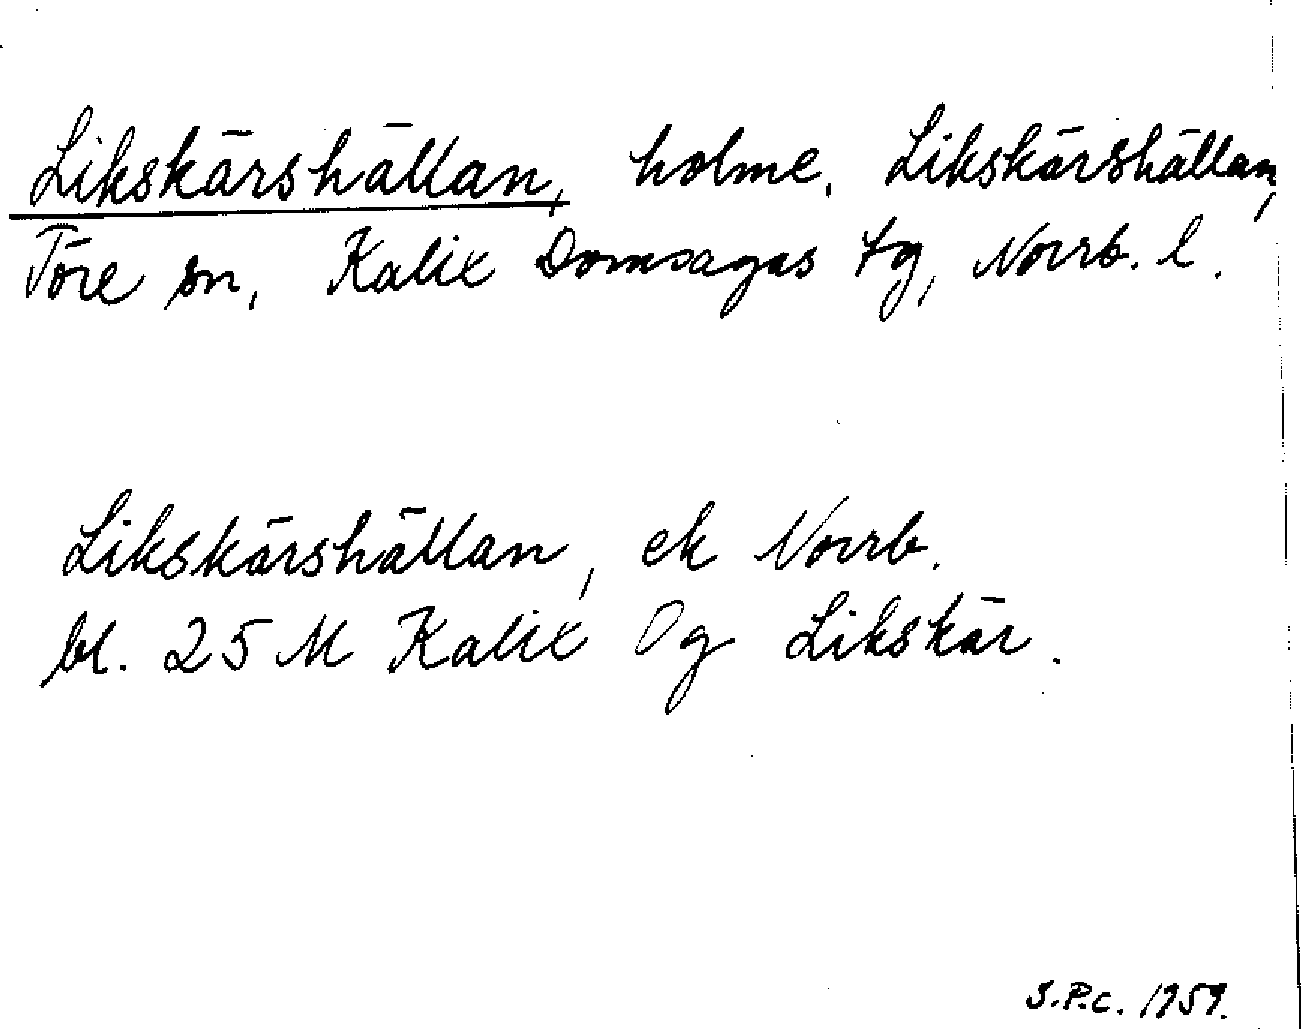 Likskärshällan, holme. Likskärshällan,
Töre sn, Kalix Domsagas tg, Norrb. l.
Likskärshällan, ek Norrb.
bl. 25 M Kalix Og Likskär.
S.P.C. 1959.